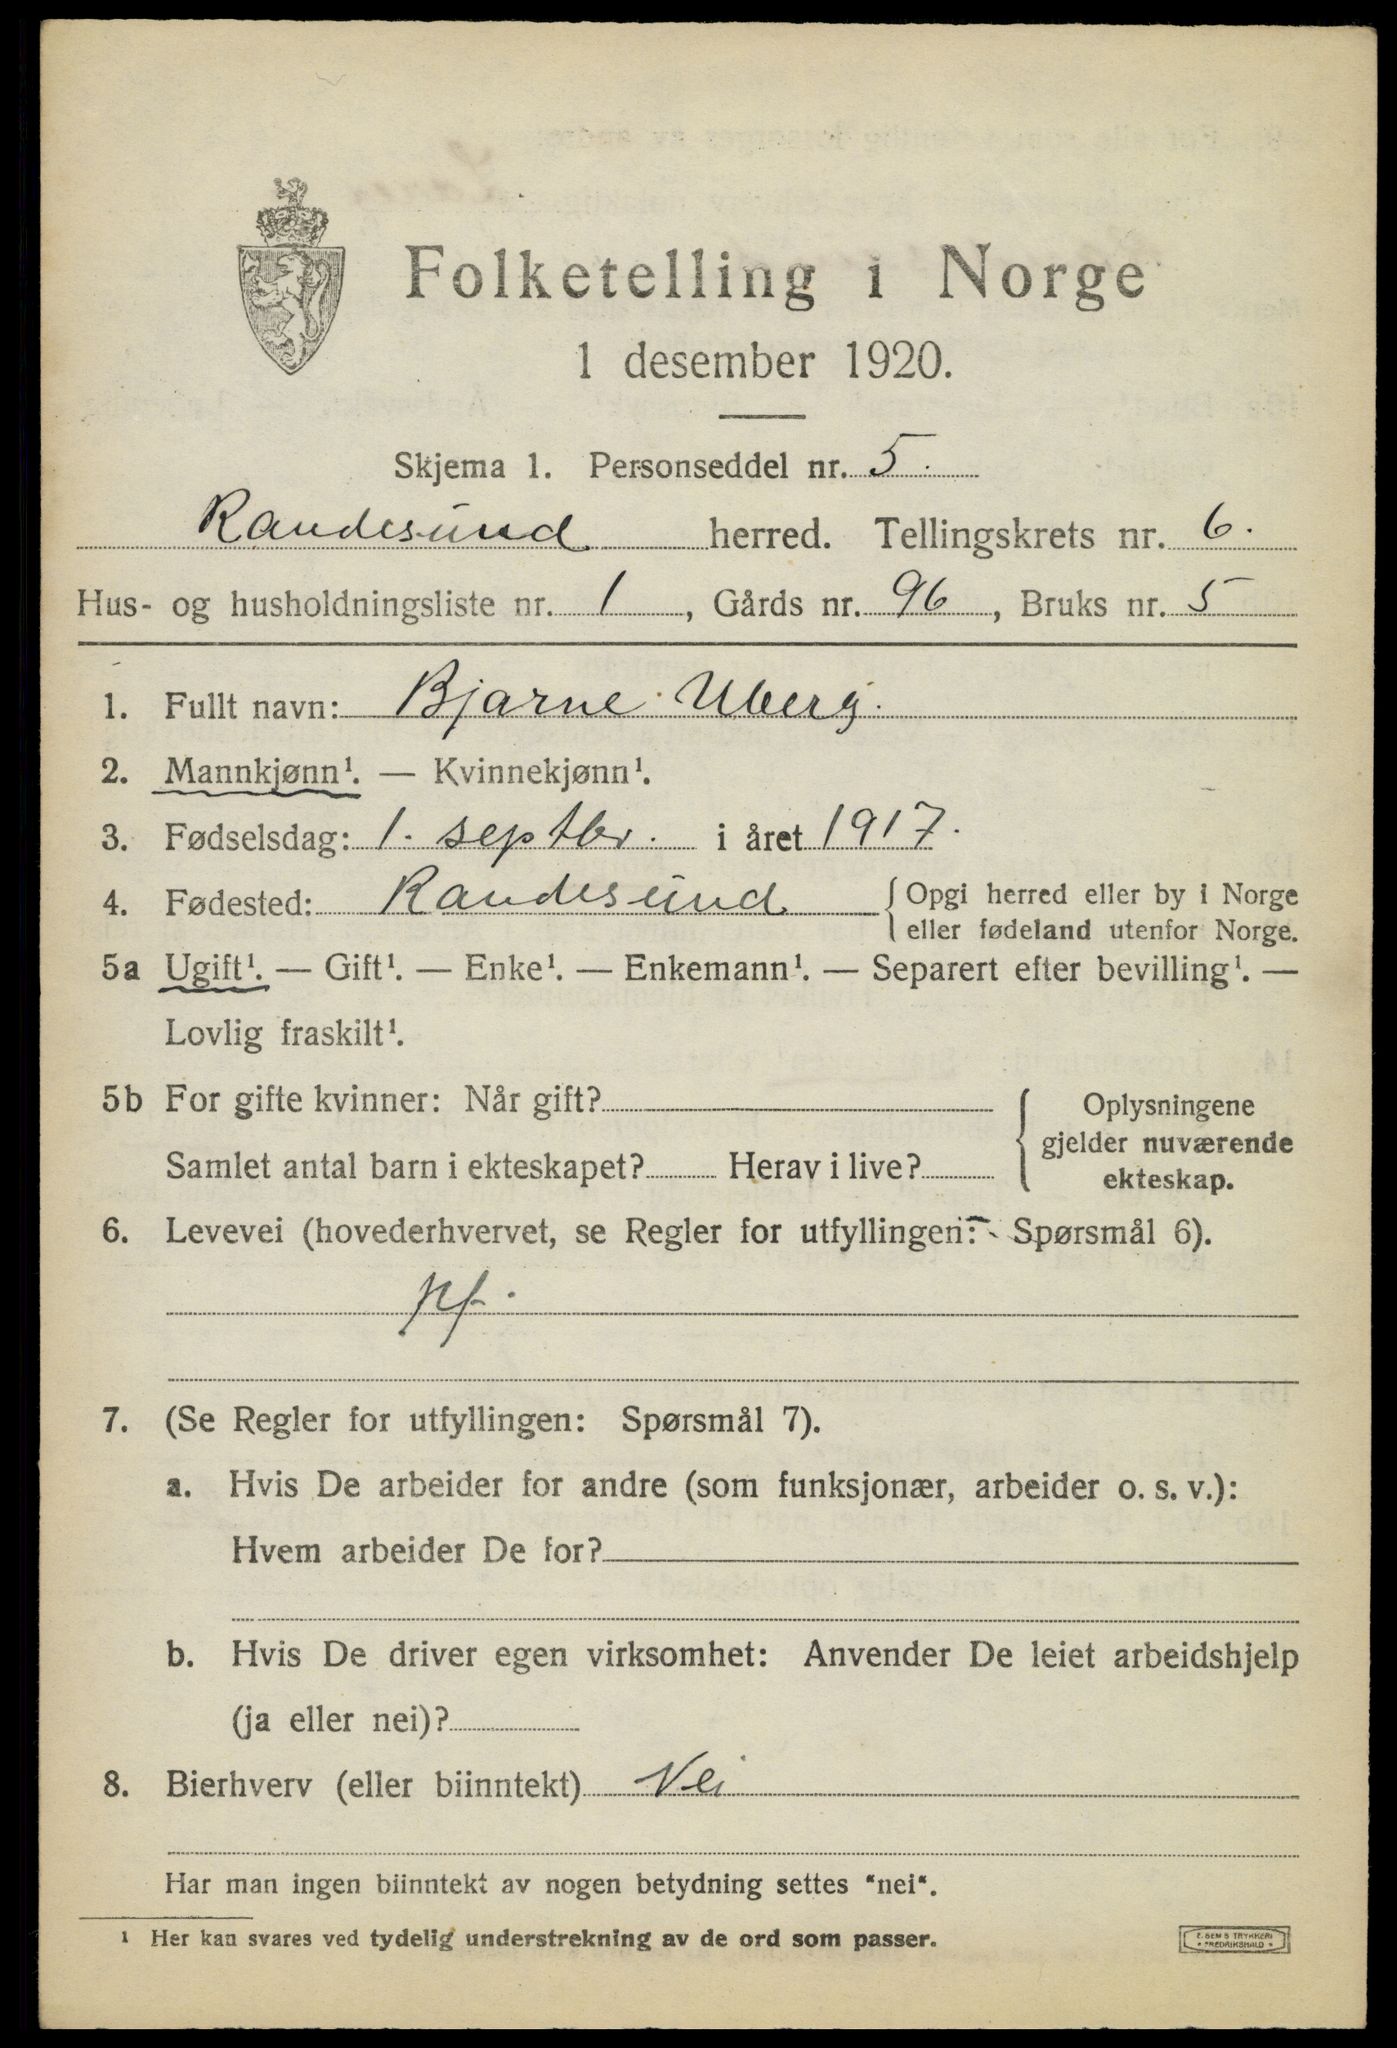 Folketelling i Norge
1 desember 1920.
Skjema 1. Personseddel nr. 5.
Randesund herred. Tellingskrets nr. 6.
Hus- og husholdningsliste nr. 1, Gårds nr. 96, Bruks nr. 5
1. Fullt navn: Bjarne Uberg.
2. Mannkjønn¹. — Kvinnekjønn¹.
3. Fødselsdag: 1. septbr. i året 1917.
4. Fødested: Randesund { Opgi herred eller by i Norge
eller fødeland utenfor Norge.
5a Ugift¹. — Gift¹. — Enke¹. — Enkemann¹. — Separert efter bevilling¹. —
Lovlig fraskilt¹.
5b For gifte kvinner: Når gift? { Oplysningene
gjelder nuværende
Samlet antal barn i ekteskapet? Herav i live? ekteskap.
6. Levevei (hovederhvervet, se Regler for utfyllingen: Spørsmål 6).
pf.
7. (Se Regler for utfyllingen: Spørsmål 7).
a. Hvis De arbeider for andre (som funksjonær, arbeider o. s. v.):
Hvem arbeider De for?
b. Hvis De driver egen virksomhet: Anvender De leiet arbeidshjelp
(ja eller nei)?
8. Bierhverv (eller biinntekt) Nei
Har man ingen biinntekt av nogen betydning settes "nei".
¹ Her kan svares ved tydelig understrekning av de ord som passer.
E. SEM'S TRYKKERI
FREDRIKSHALD